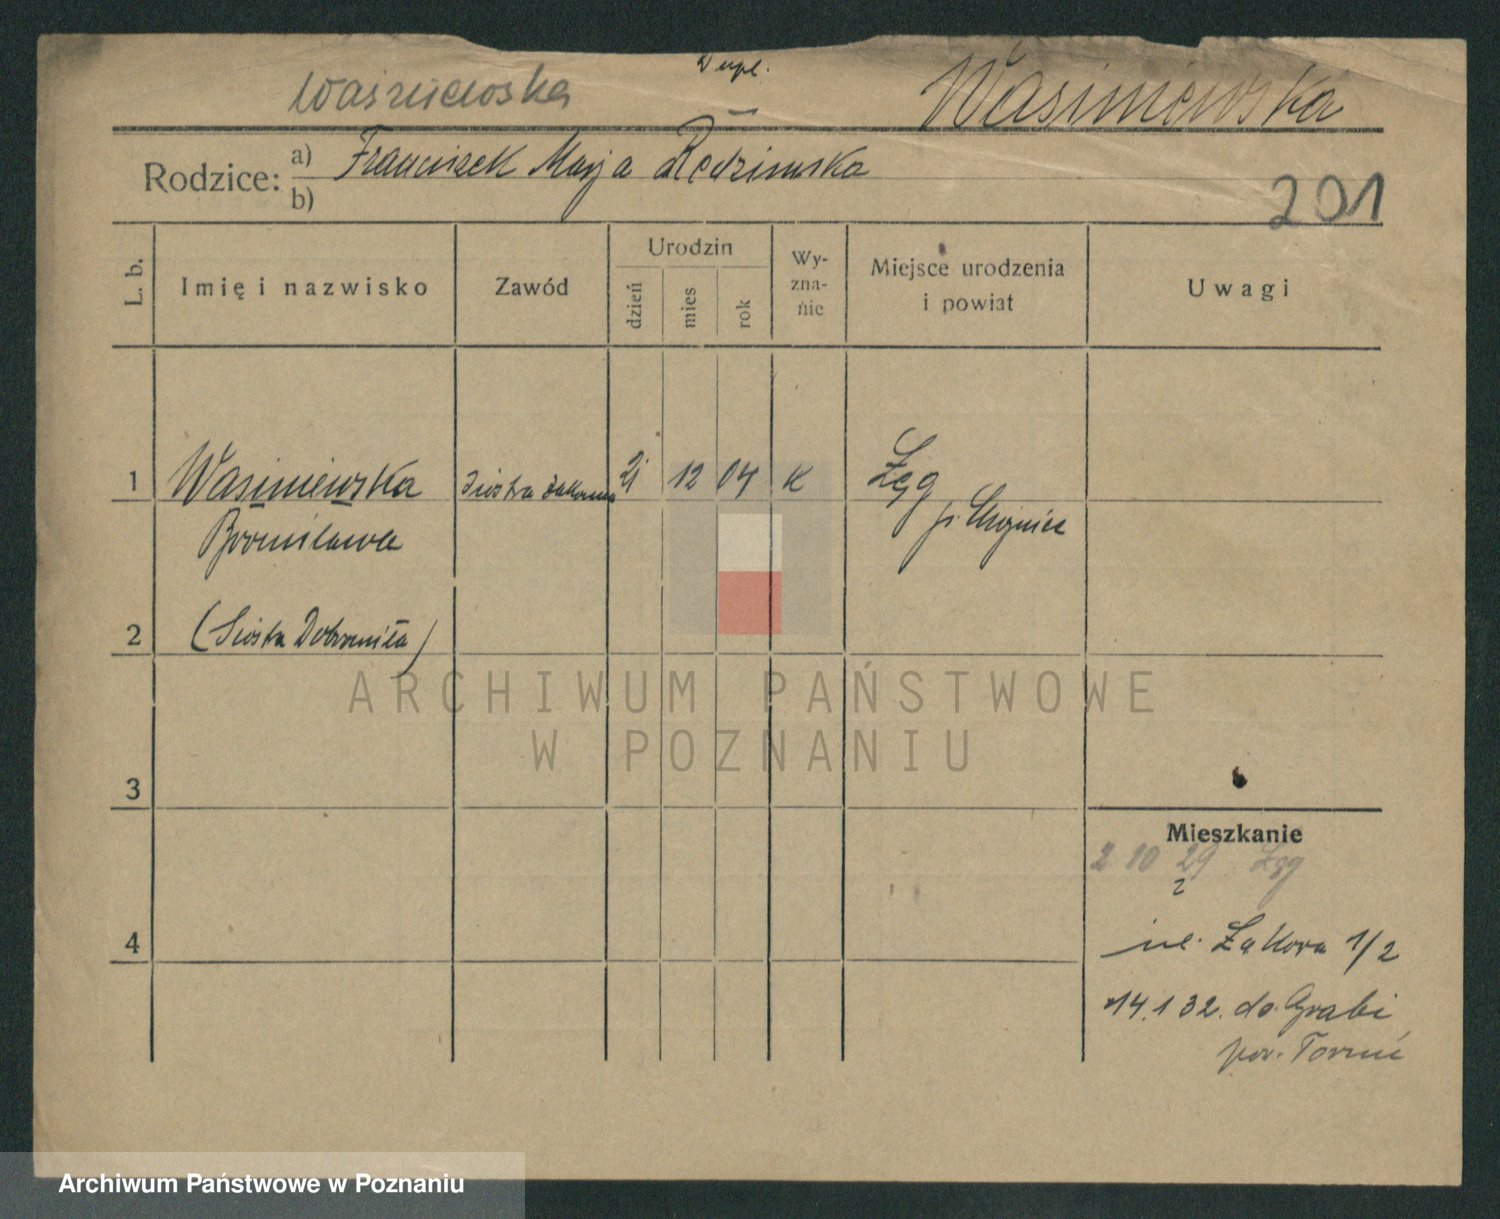 Dupl.
Waśniewska
Wasiniewska
Rodzice: a) Franciszek Marja Redzimska
b)
201
L. b.
Imię i nazwisko
Zawód
Urodzin
dzień
mies
rok
Wy-
zna-
nie
Miejsce urodzenia
i powiat
Uwagi
1 Wasiniewska Siostra zakonna 12 04 K Łęg
Bronisława p. Chojnice
2 (Siostra Dobromiła)
ARCHIWUM PAŃSTWOWE
W POZNANIU
3
Mieszkanie
2 10 29 Łęg
2
4 ul. Łąkowa 1/2
14.1 32. do Grabi
pow. Toruń
Archiwum Państwowe w Poznaniu